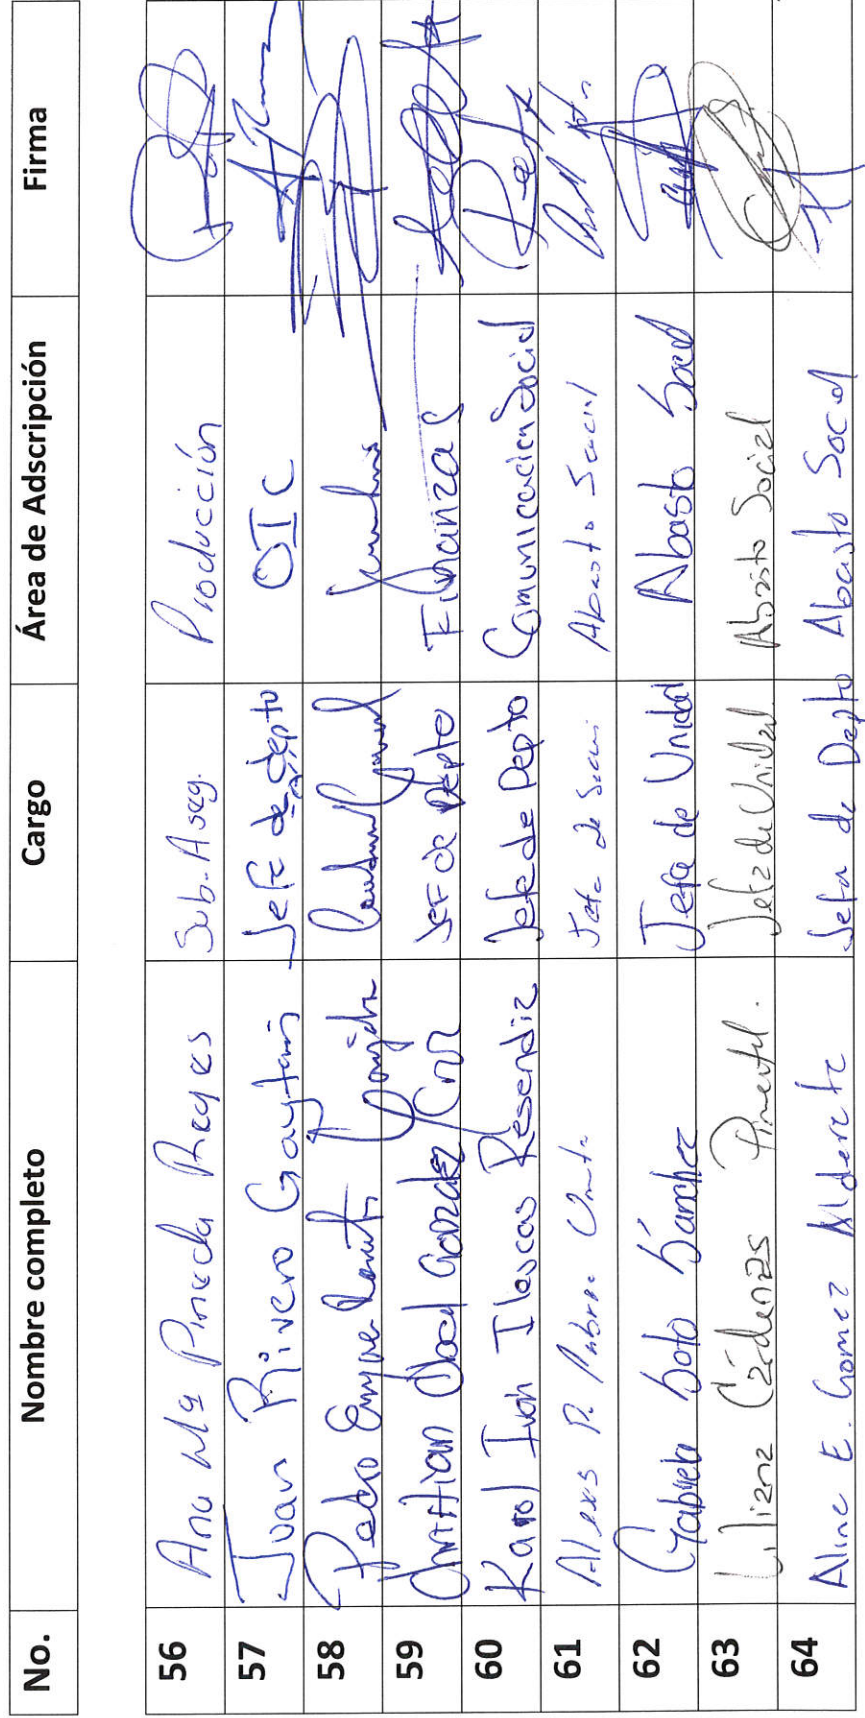 No. Nombre completo Cargo Área de Adscripción Firma
56 Ana Ma Pineda Reyes Sub. Aseg. Producción
57 Juan Rivero Gaytan Jefe de depto OIC
58 Pedro Enrique
59 Christian González Cruz Jef de Depto Finanzas
60 Karol Ivan Ilescas Resendiz Jefe de Depto Comunicacion Social
61 Alexis P. Jefe de Abasto Social
62 Gabriela Soto Sánchez Jefa de Unidad Abasto Social
63 Liliana Cárdenas Pimentel. Jefa de Unidad. Abasto Social
64 Aline E. Gomez Alderete Jefa de Depto Abasto Social